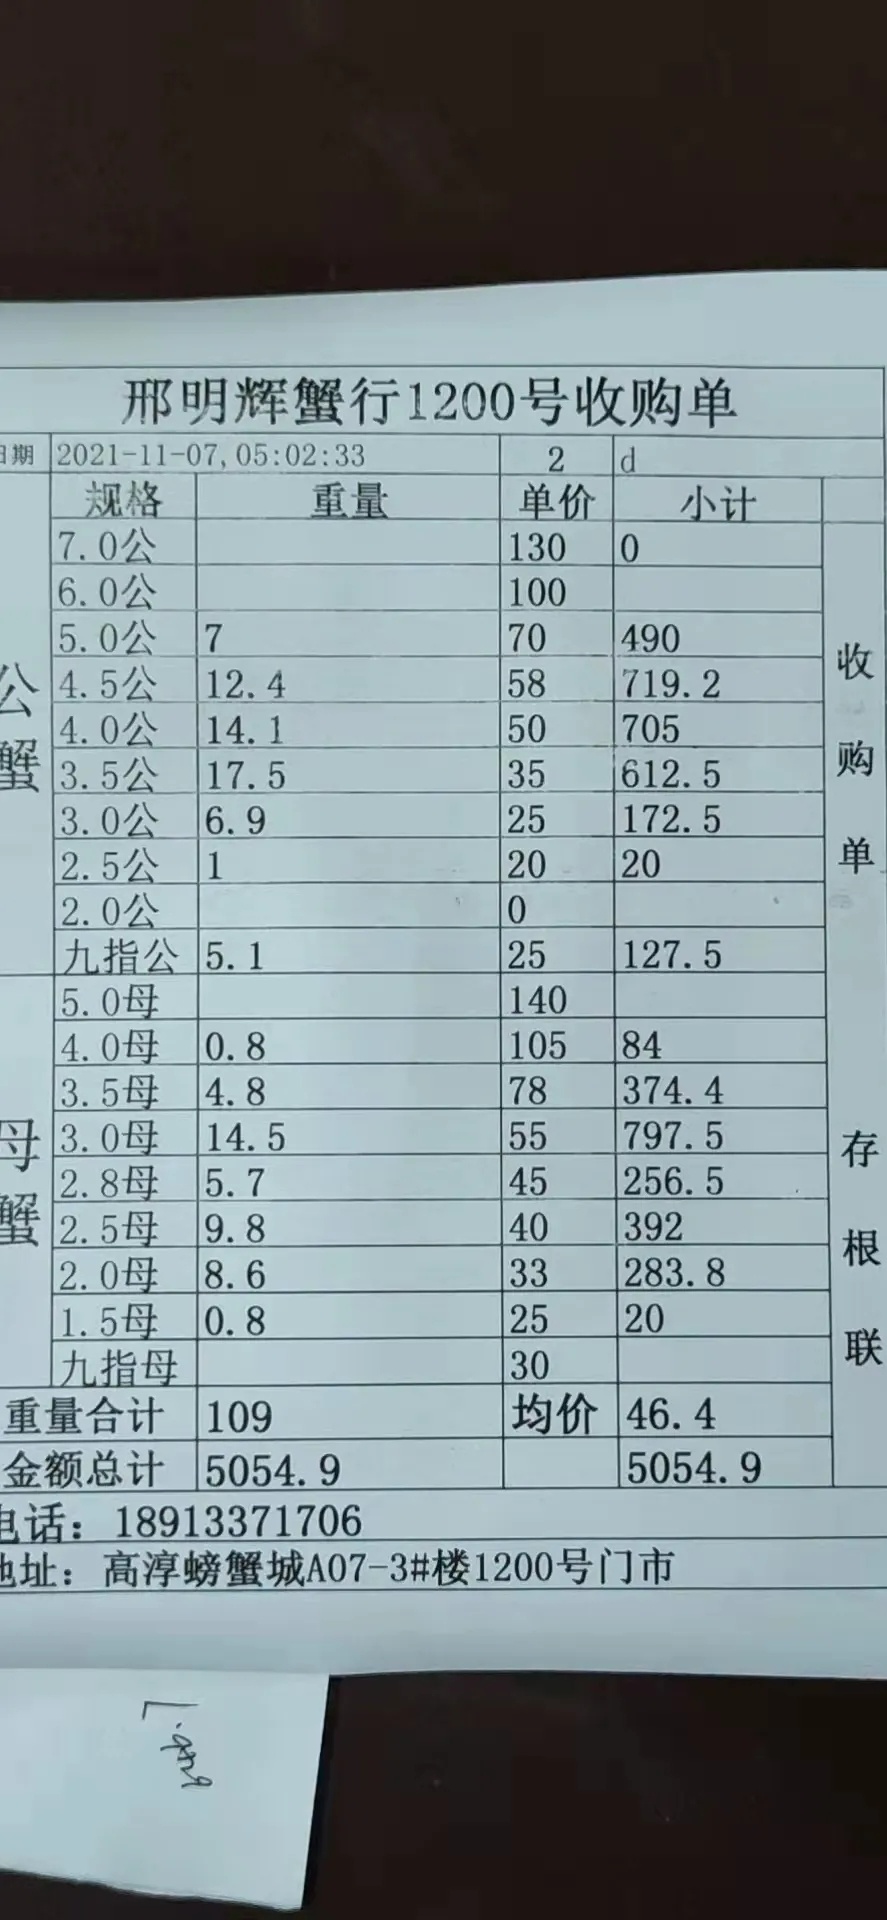 邢明辉蟹行1200号收购单
日期 2021-11-07,05:02:33 2 d
规格 重量 单价 小计
公蟹
7.0公 130 0
6.0公 100
5.0公 7 70 490
4.5公 12.4 58 719.2
4.0公 14.1 50 705
3.5公 17.5 35 612.5
3.0公 6.9 25 172.5
2.5公 1 20 20
2.0公 0
九指公 5.1 25 127.5
母蟹
5.0母 140
4.0母 0.8 105 84
3.5母 4.8 78 374.4
3.0母 14.5 55 797.5
2.8母 5.7 45 256.5
2.5母 9.8 40 392
2.0母 8.6 33 283.8
1.5母 0.8 25 20
九指母 30
收购单 存根联
重量合计 109 均价 46.4
金额总计 5054.9 5054.9
电话：18913371706
地址：高淳螃蟹城A07-3#楼1200号门市